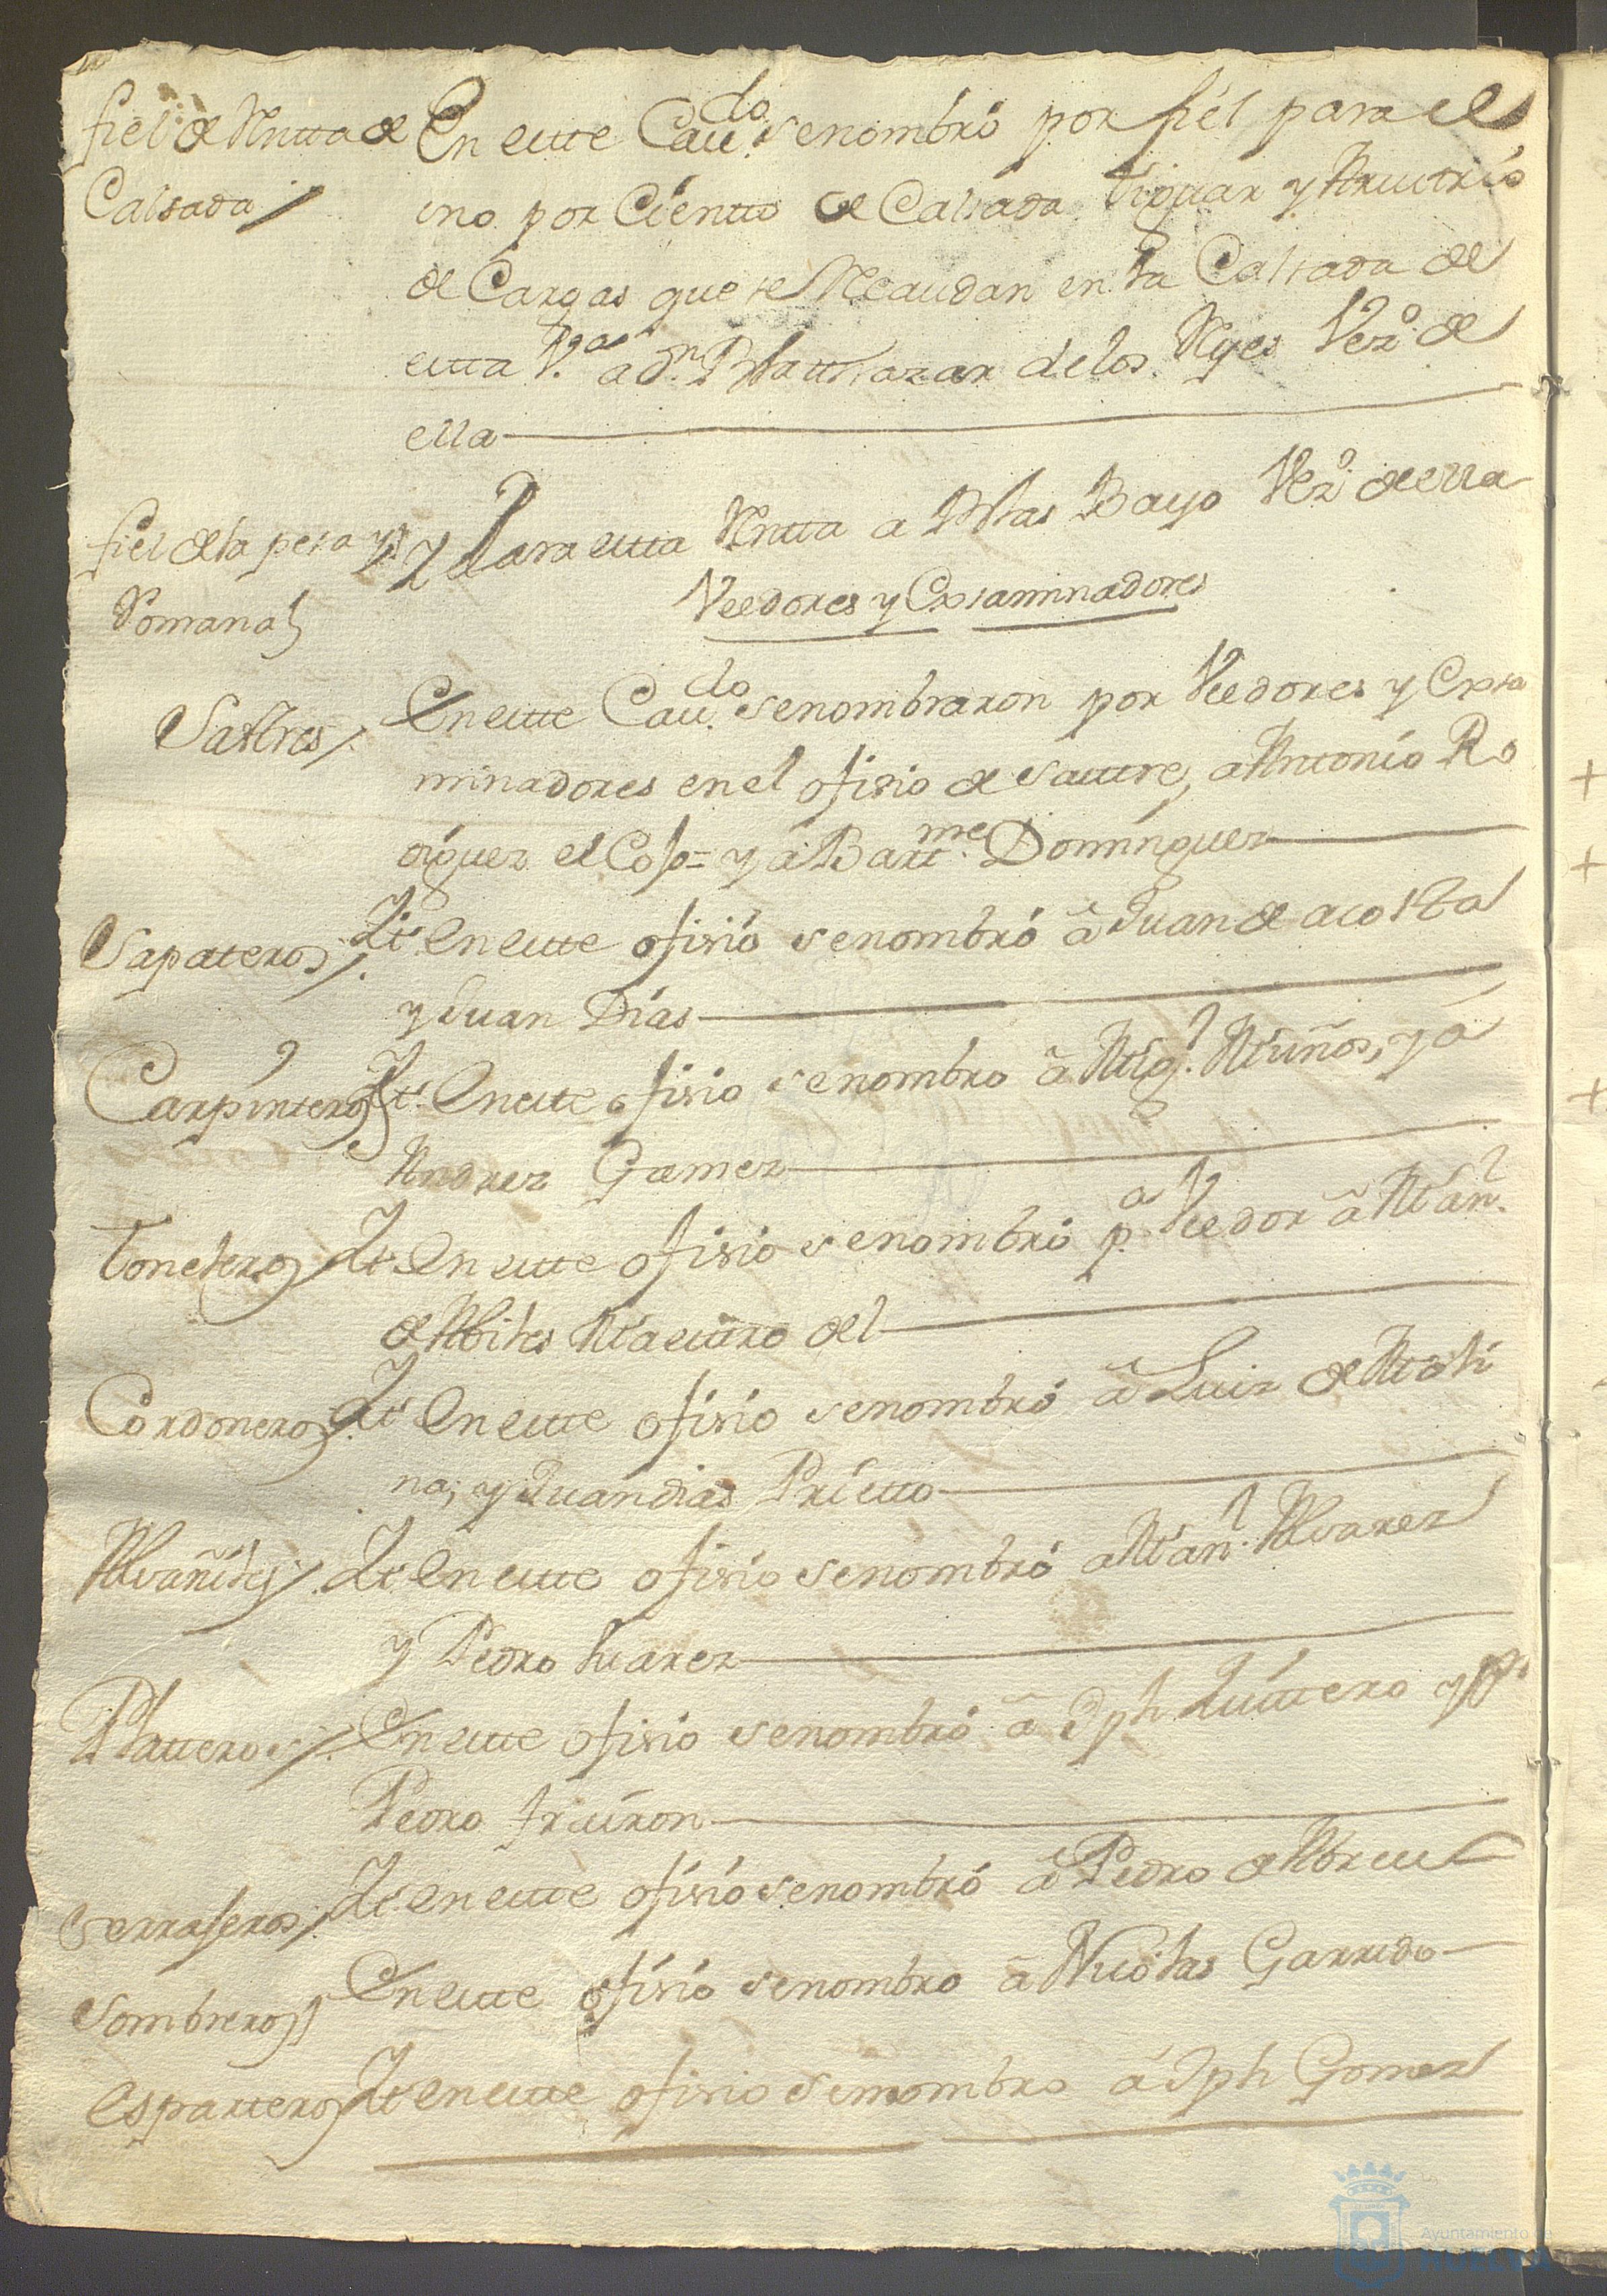 fiel de Rentta de
Calsada
En estte Cav.do se nombró por fiel para el
uno por Ciento de Calsada
de Cargas que se Recaudan en la Calsada de
estta V.a a D.n Baltthazar de los Reyes Vez.o de
ella
fiel de la pesa y
Romana
Y Para estta Rentta a Blas Bayo Vez.o de ella
Veedores y Exsaminadores
Sasttres
En estte Cav.do se nombraron por Veedores y Exsa
minadores en el ofisio de sasttre, a Antonio Ro
driguez el Cojo = y a Bartt.me Dominguez
Sapateros
It. en estte ofisio se nombró â Juan de acosta
y Juan Días
Carpinteros
It. En estte ofisio se nombro â Mig.l Muños, y a
Andrez Gamez
Toneleros
It. En estte ofisio se nombró p.a Veedor â Man.l
de Abiles Maesttro del
Cordoneros
It. En estte ofisio se nombró â Luiz de Moli
na, y Juan dias Prietto
Alvañiles
It. En estte ofisio se nombró a Man.l Alvarez
y Pedro Suarez
Platteros
En estte ofisio se nombró â Jph Quinttero y a
Pedro
Serrajeros
It. en estte ofisio se nombró â Pedro de Abreu
Sombreros
En estte ofisio se nombro â Nicolas Garrido
Esparteros
It. en estte ofisio se nombro a Jph Gomez
Ayuntamiento de
HUELVA